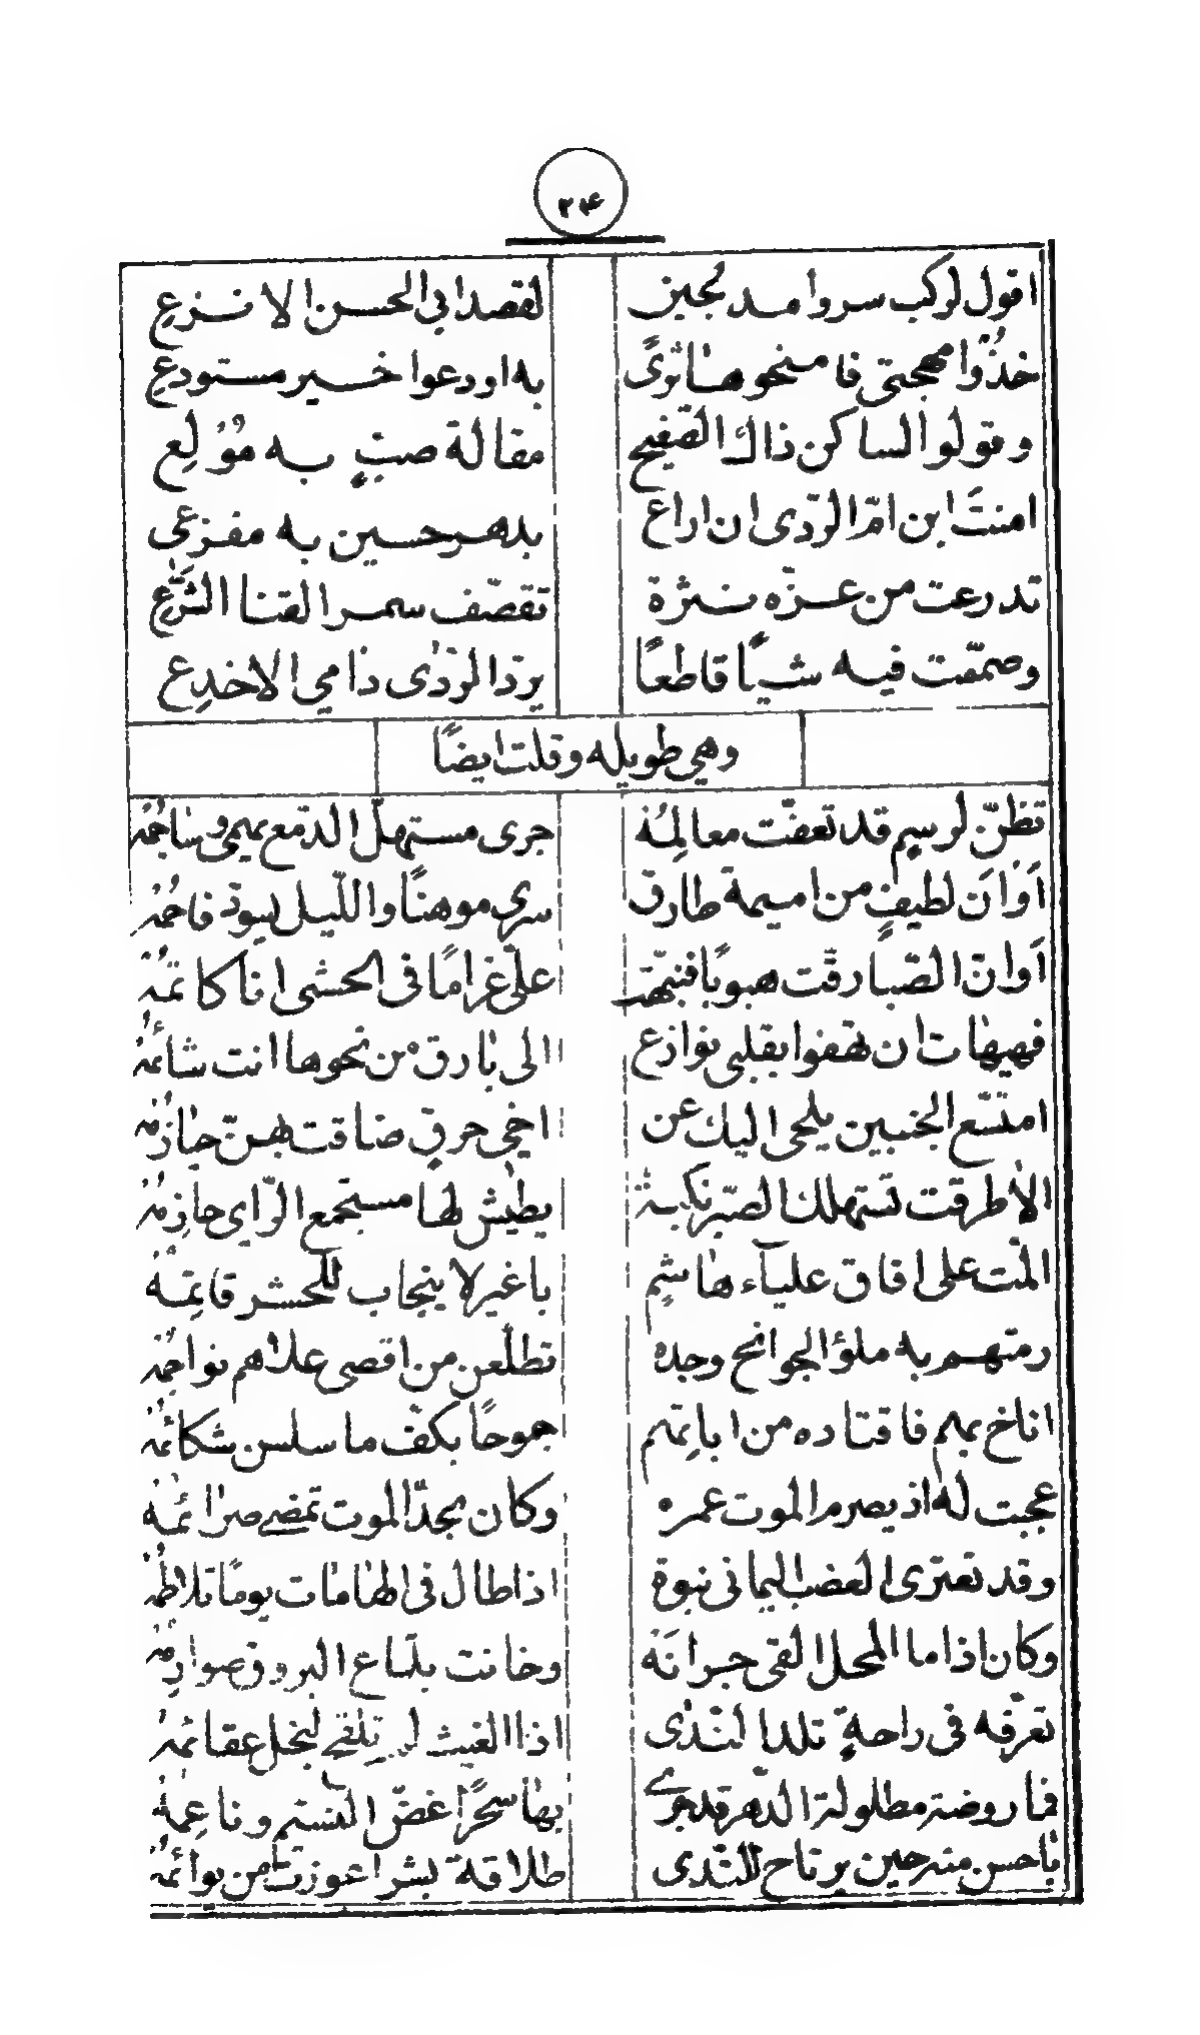 ۲۴
اقول لركب سروا مدلجين لقصد ابي الحسن الانزعِ
خذُوا مهجتي فامنحوهٰا ثرًى به اودعوا خير مستودعِ
وقولوا لساكن ذاك الضّفيح مقالة صبٍّ به مُوُلِعِ
امنتَ ابن امّ الرّدى ان اراع بدهر حسين به مفزعي
تدرعت من عزّه نثرة تقصّف سمر القنا الشّرَّعِ
وصمّمت فيه شبًا قاطعًا يردّ الرّدٰى دٰامي الاخدِعِ
وهي طويله وقلت ايضًا
تظنّ لرسمٍ قد تعفّت معالِمُهْ جرى مستهلّ الدّمع يهمي وسٰاجمُهْ
اَوْ اَنّ لطيفٍ من اميمة طارق سرى موهنًا واللّيل يسودّ فاحمُهْ
اَوْ انّ الصّبا رقّت هبوبًا فنبّهت علىّ غرامًا في الحشى انا كاتمُهْ
فهيهٰات ان تهفوا بقلبي نوازع الى بٰارق من نحوها انت شائمُهْ
امتسّع الجنبين يلحى اليك عن اخي حرقٍ ضاقت بهنّ حيٰازمُهْ
الاٰطرقت تستهلك الصّبر نكبةْ يطيش لها مستجمع الرّاي حازِمُهْ
المّت على افاق علياۤء هٰاشمٍ باغبر لا ينجاب للحشر قاتِمُهْ
رمتهم به ملؤ الجوانح وحده تطلّعن من اقصى علاهم نواجمُهْ
اناخ بهم فاقتاده من ابائِهم جموحًا بكفّ ما سلسن شكائمُهْ
عجبت له اذ يصرم الموت عمره وكان بحدّ الموت تمضي صرائمُهْ
وقد تعترى العضب اليماني نبوة اذا طال في الهٰامٰات يومًا تلاطمُهْ
وكان اذا ما المحل القى جرانَهْ وخانت بلماع البروق صوادِمُهْ
تعرّفه في راحةٍ تلد النّدٰى اذا الغيث لم تلقح لبخل عقائمُهْ
فما روضة مطلولة الدّهر قد جرى بهٰا سحرًا غضّ النّسيم وناعِمُهْ
بٰاحسن منه حين يرتاح للنّدى طلاقة بشر اعوزت من يوائمُهْ